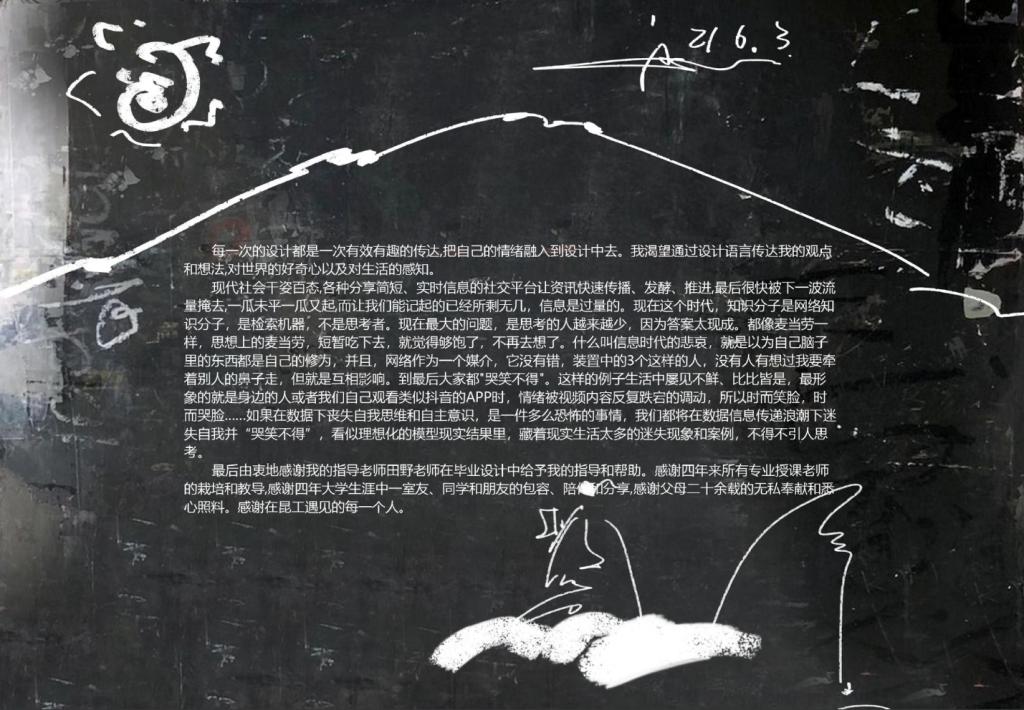 21 6.3
每一次的设计都是一次有效有趣的传达,把自己的情绪融入到设计中去。我渴望通过设计语言传达我的观点
和想法,对世界的好奇心以及对生活的感知。
现代社会千姿百态,各种分享简短、实时信息的社交平台让资讯快速传播、发酵、推进,最后很快被下一波流
量掩去,一瓜未平一瓜又起,而让我们能记起的已经所剩无几，信息是过量的。现在这个时代，知识分子是网络知
识分子，是检索机器，不是思考者。现在最大的问题，是思考的人越来越少，因为答案太现成。都像麦当劳一
样，思想上的麦当劳，短暂吃下去，就觉得够饱了，不再去想了。什么叫信息时代的悲哀，就是以为自己脑子
里的东西都是自己的修为，并且，网络作为一个媒介，它没有错，装置中的3个这样的人，没有人有想过我要牵
着别人的鼻子走，但就是互相影响。到最后大家都"哭笑不得"。这样的例子生活中屡见不鲜、比比皆是，最形
象的就是身边的人或者我们自己观看类似抖音的APP时，情绪被视频内容反复跌宕的调动，所以时而笑脸，时
而哭脸......如果在数据下丧失自我思维和自主意识，是一件多么恐怖的事情，我们都将在数据信息传递浪潮下迷
失自我并“哭笑不得”，看似理想化的模型现实结果里，藏着现实生活太多的迷失现象和案例，不得不引人思
考。
最后由衷地感谢我的指导老师田野老师在毕业设计中给予我的指导和帮助。感谢四年来所有专业授课老师
的栽培和教导,感谢四年大学生涯中一室友、同学和朋友的包容、陪伴和分享,感谢父母二十余载的无私奉献和悉
心照料。感谢在昆工遇见的每一个人。